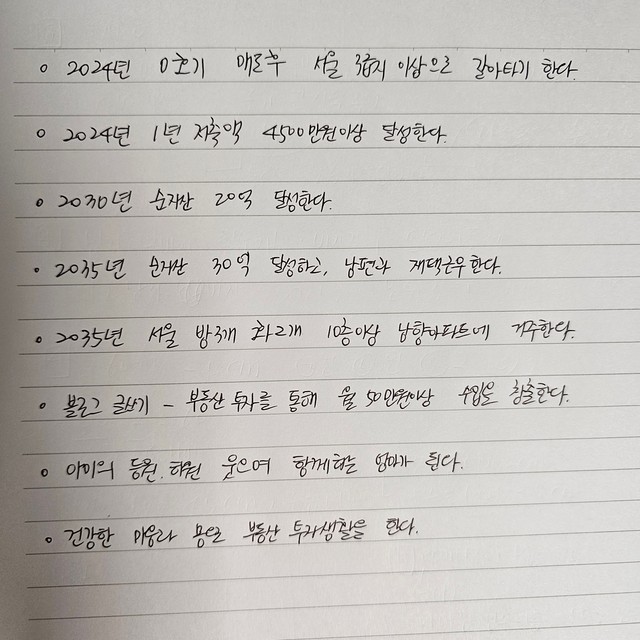 ◦ 2024년 0호기 매도후 서울 3급지 이상으로 갈아타기 한다.
◦ 2024년 1년 저축액 4500만원이상 달성한다.
◦ 2030년 순자산 20억 달성한다.
◦ 2035년 순자산 30억 달성하고, 남편과 재택근무한다.
◦ 2035년 서울 방3개 화2개 10층이상 남향아파트에 거주한다.
◦ 블로그 글쓰기 - 부동산 투자를 통해 월 50만원이상 수입을 창출한다.
◦ 아이의 등원, 하원 웃으며 함께하는 엄마가 된다.
◦ 건강한 마음과 몸으로 부동산 투자생활을 한다.